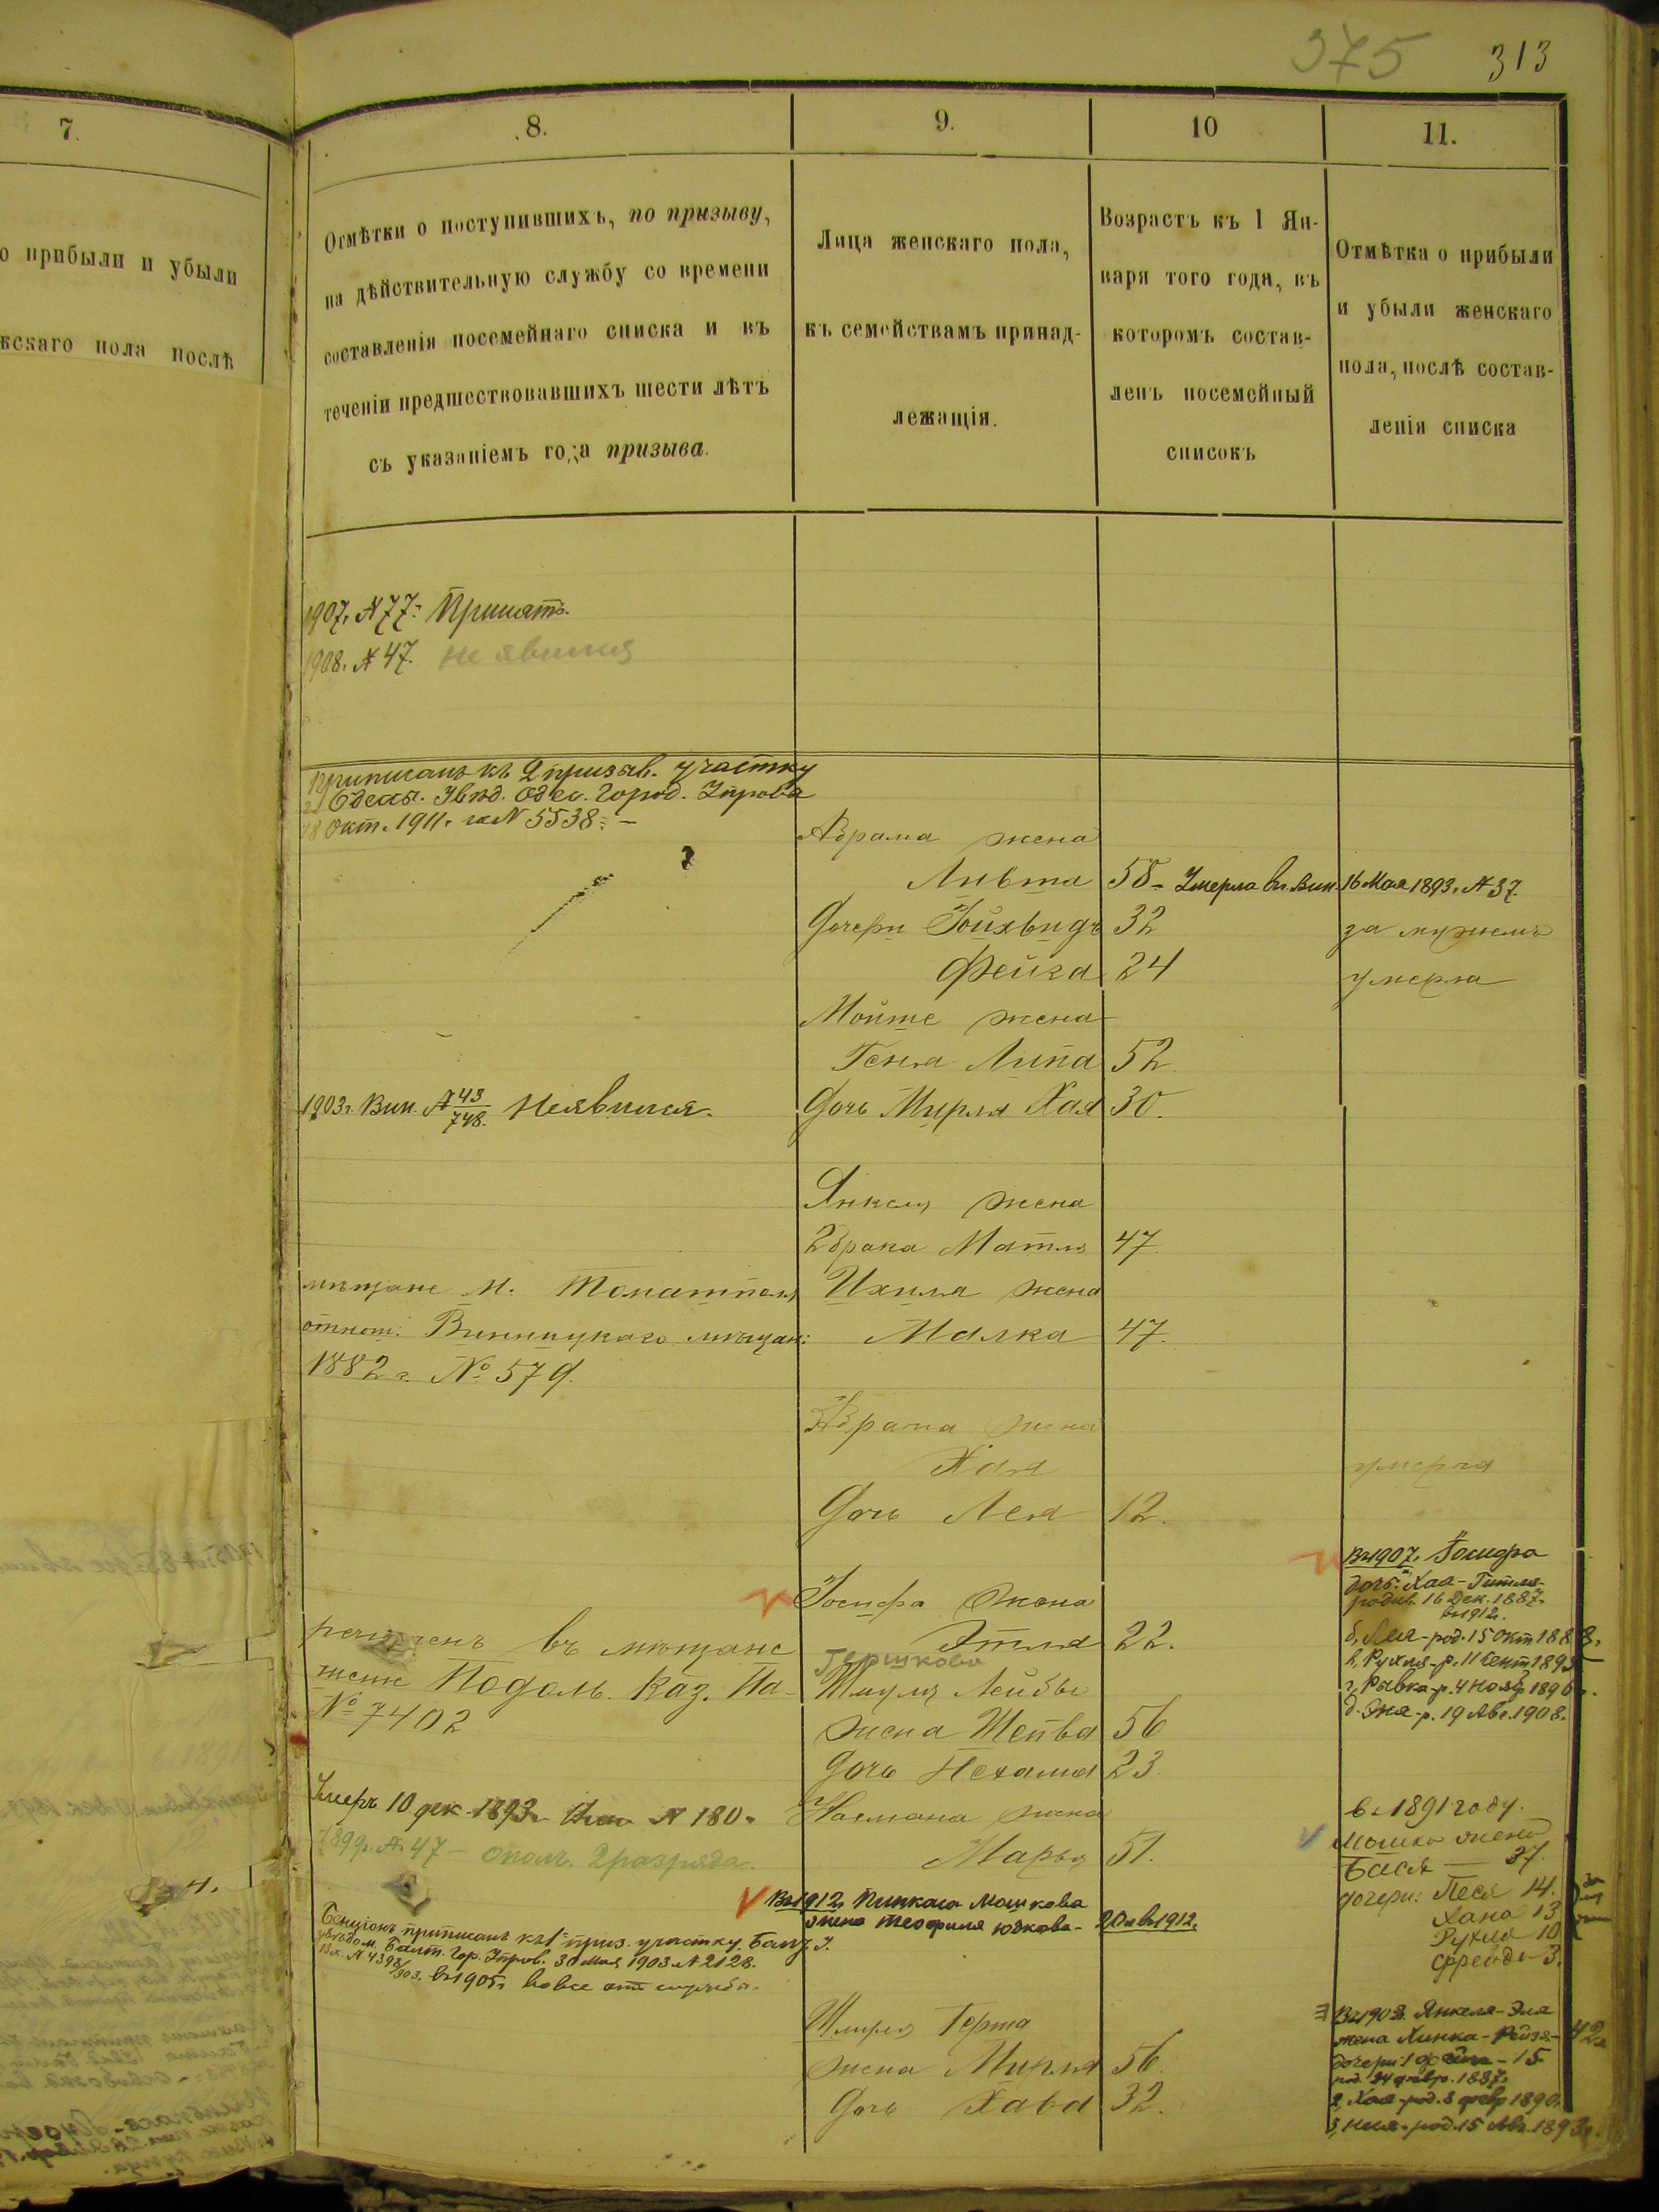 375 313
7.
8.
9.
10
11.
о прибыли и убыли
жскаго пола послѣ
Отмѣтки о поступившихъ, по призыву,
на дѣйствительную службу со времени
составленія посемейнаго списка и въ
теченіи предшествовавшихъ шести лѣтъ
съ указаніемъ года призыва.
Лица женскаго пола,
къ семействамъ принад-
лежащія.
Возрастъ къ 1 Ян-
варя того года, въ
которомъ состав-
ленъ посемейный
списокъ
Отмѣтка о прибыли
и убыли женскаго
пола, послѣ состав-
ленія списка
1907. № 77: Принятъ.
1908. № 47. не явился
Приписанъ къ 2 призыв. участку
г. Одессы. Увѣд. Одес. Город. Управа
18 Окт. 1911 г. за № 5538: –
Абрама жена
Ливша 58 – Умерла въ Вин. 16 Мая 1893. № 37.
Дочери Іойхвидъ 32 за мужемъ
Фейга 24 умерла
Мойше жена
Геня Липа 52
1903 г. Вин. № 43/748. Неявился. Дочь Мирля Хая 30.
Янкеля жена
2 брака Матля 47
мѣщане м. Томашполя Ихиля жена
отнош. Винницкаго мѣщан: Малка 47.
1882 г. № 579.
Абрама жена
Хая умерла
Дочь Лея 12.
Іосифа жена
Этля 22.
въ мѣщане
Подоль. Каз. Па-
№ 7402
Гершкова
Шмуля Лейбы
жена Шейва 56
Дочь Нехама 23.
Въ 1907. Іосифа
дочь: Хая-Гитля-
родив. 16 Дек. 1887.
въ 1912.
б, Лея - род. 15 Окт 1888.
в, Рухля - р. 11 Сент 1893
г, Рывка - р. 4 Нояб 1896.
д. Эня - р. 19 Авг. 1908.
Умеръ 10 дек. 1893 г. Вин № 180.
1899 г. № 47 – опол. 2 разряда.
Нахмана жена
Марья 51.
въ 1891 году.
Мошка жена
Бася — 37.
дочери: Песя 14.
Хана 13
Рухля 10
Фрейда 3.
Въ 1912 Пинкаса Мошкова
жена Теофиля Юдкова – 20 л въ 1912.
Бенціонъ приписанъ къ 1 приз. участку. Балт. У.
увѣдом. Балт. Гор. Управ. 30 Мая 1903 № 2128.
Вх. № 4398/903. въ 1905 вовсе отъ службы.
Шлиря Герша
жена Мирля 56.
Дочь Хава 32.
Въ 1908. Янкеля-Эля
жена Хинка-Рейзя - 42
дочери: 1 Фейга - 15
род. 24 февр. 1887.
2, Хая - род. 8 февр 1890.
3, Неля - род. 15 Авг. 1893 г.